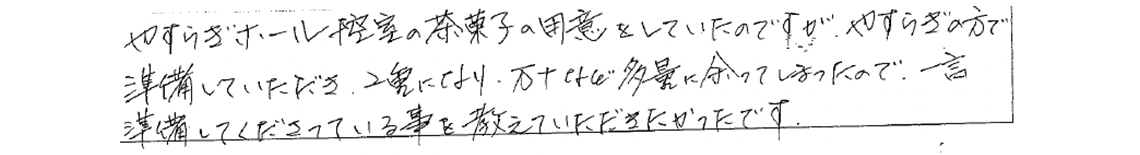 やすらぎホール控室の茶菓子の用意をしていたのですが、やすらぎの方で
準備していただき、二重になり、万十など多量に余ってしまったので、一言
準備してくださっている事を教えていただきたかったです。